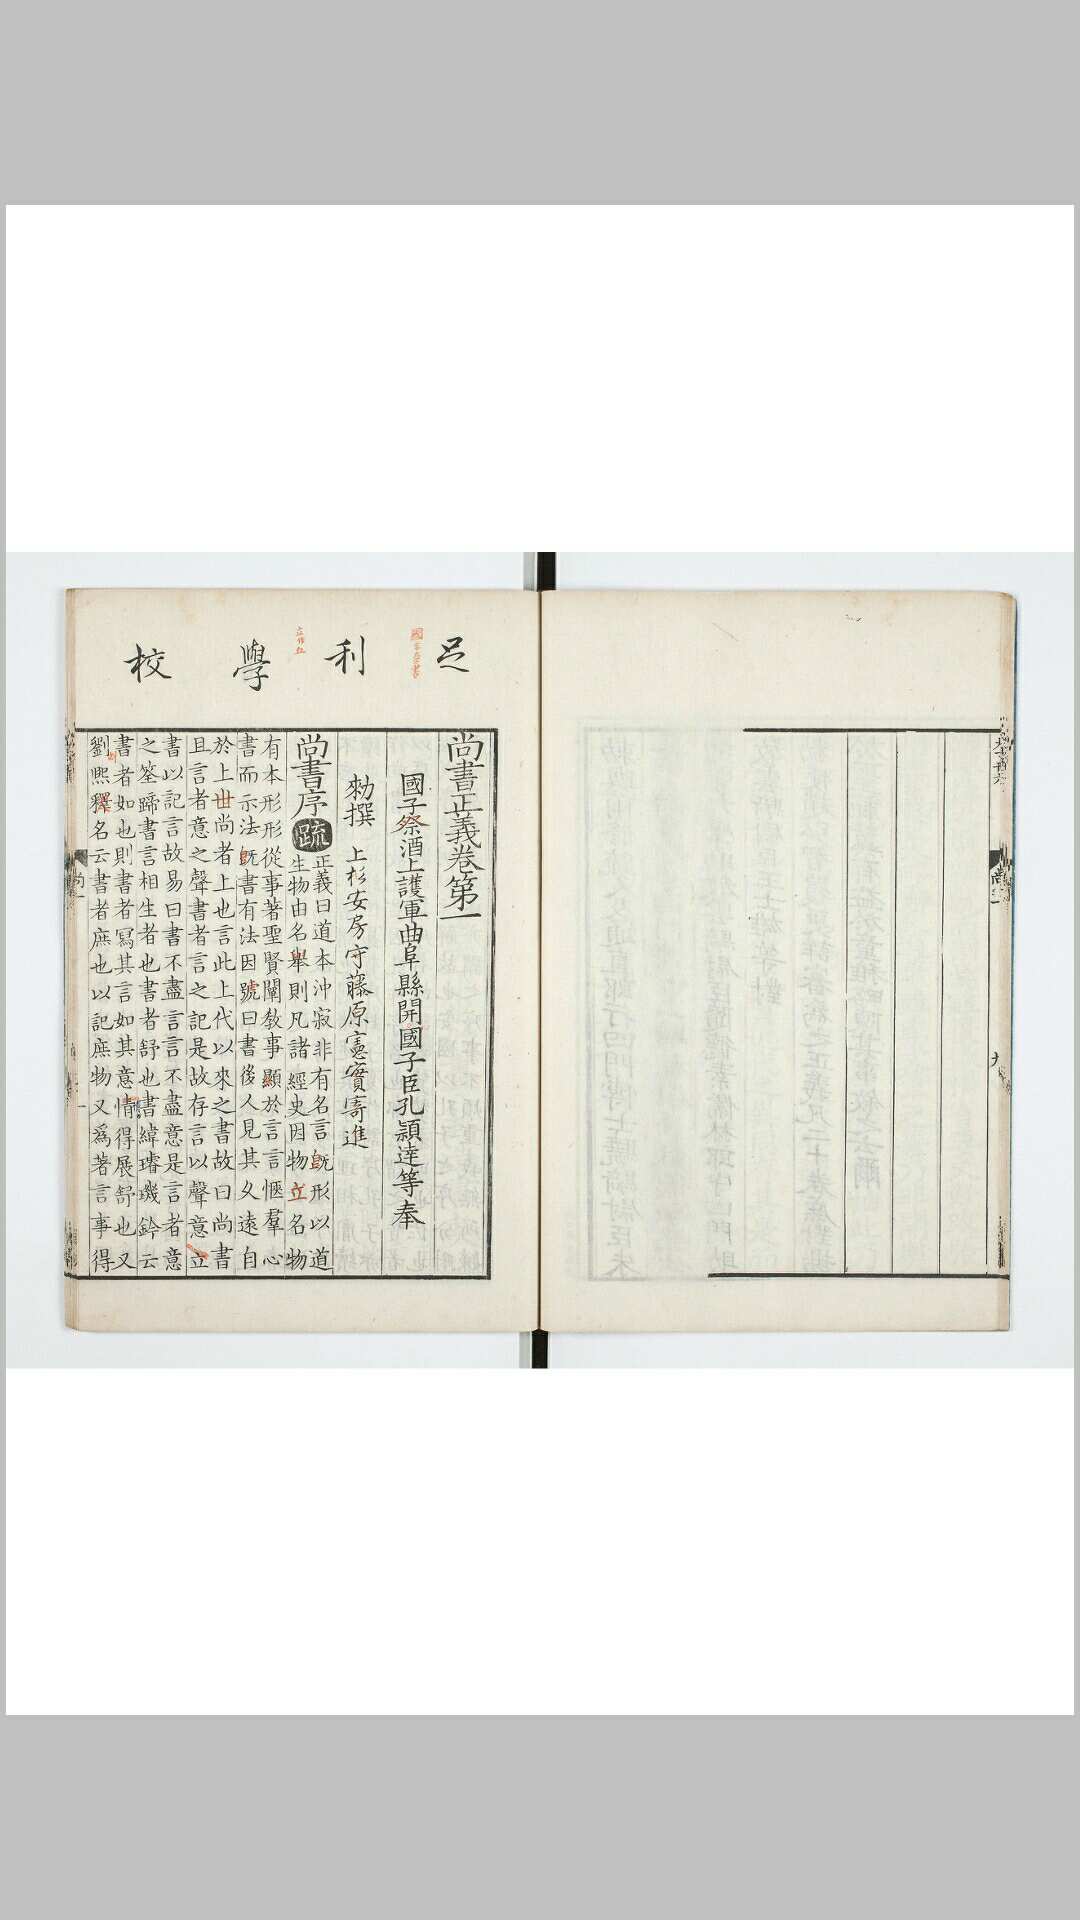 足利學校
尚書正義卷第一
國子祭酒上護軍曲阜縣開國子臣孔穎達等奉
勑撰
上杉安房守藤原憲實寄進
尚書序
疏
正義曰道本沖寂非有名言既形以道
生物由名舉則凡諸經史因物立名物
有本形形從事著聖賢闡教事顯於言言愜羣心
書而示法既書有法因號曰書後人見其久遠自
於上世尚者上也言此上代以來之書故曰尚書
且言者意之聲書者言之記是故存言以聲意立
書以記言故易曰書不盡言言不盡意是言者意
之筌蹄書言相生者也書者舒也書緯璿璣鈐云
書者如也則書者寫其言如其意情得展舒也又
劉熙釋名云書者庶也以記庶物又爲著言事得
尚一
九